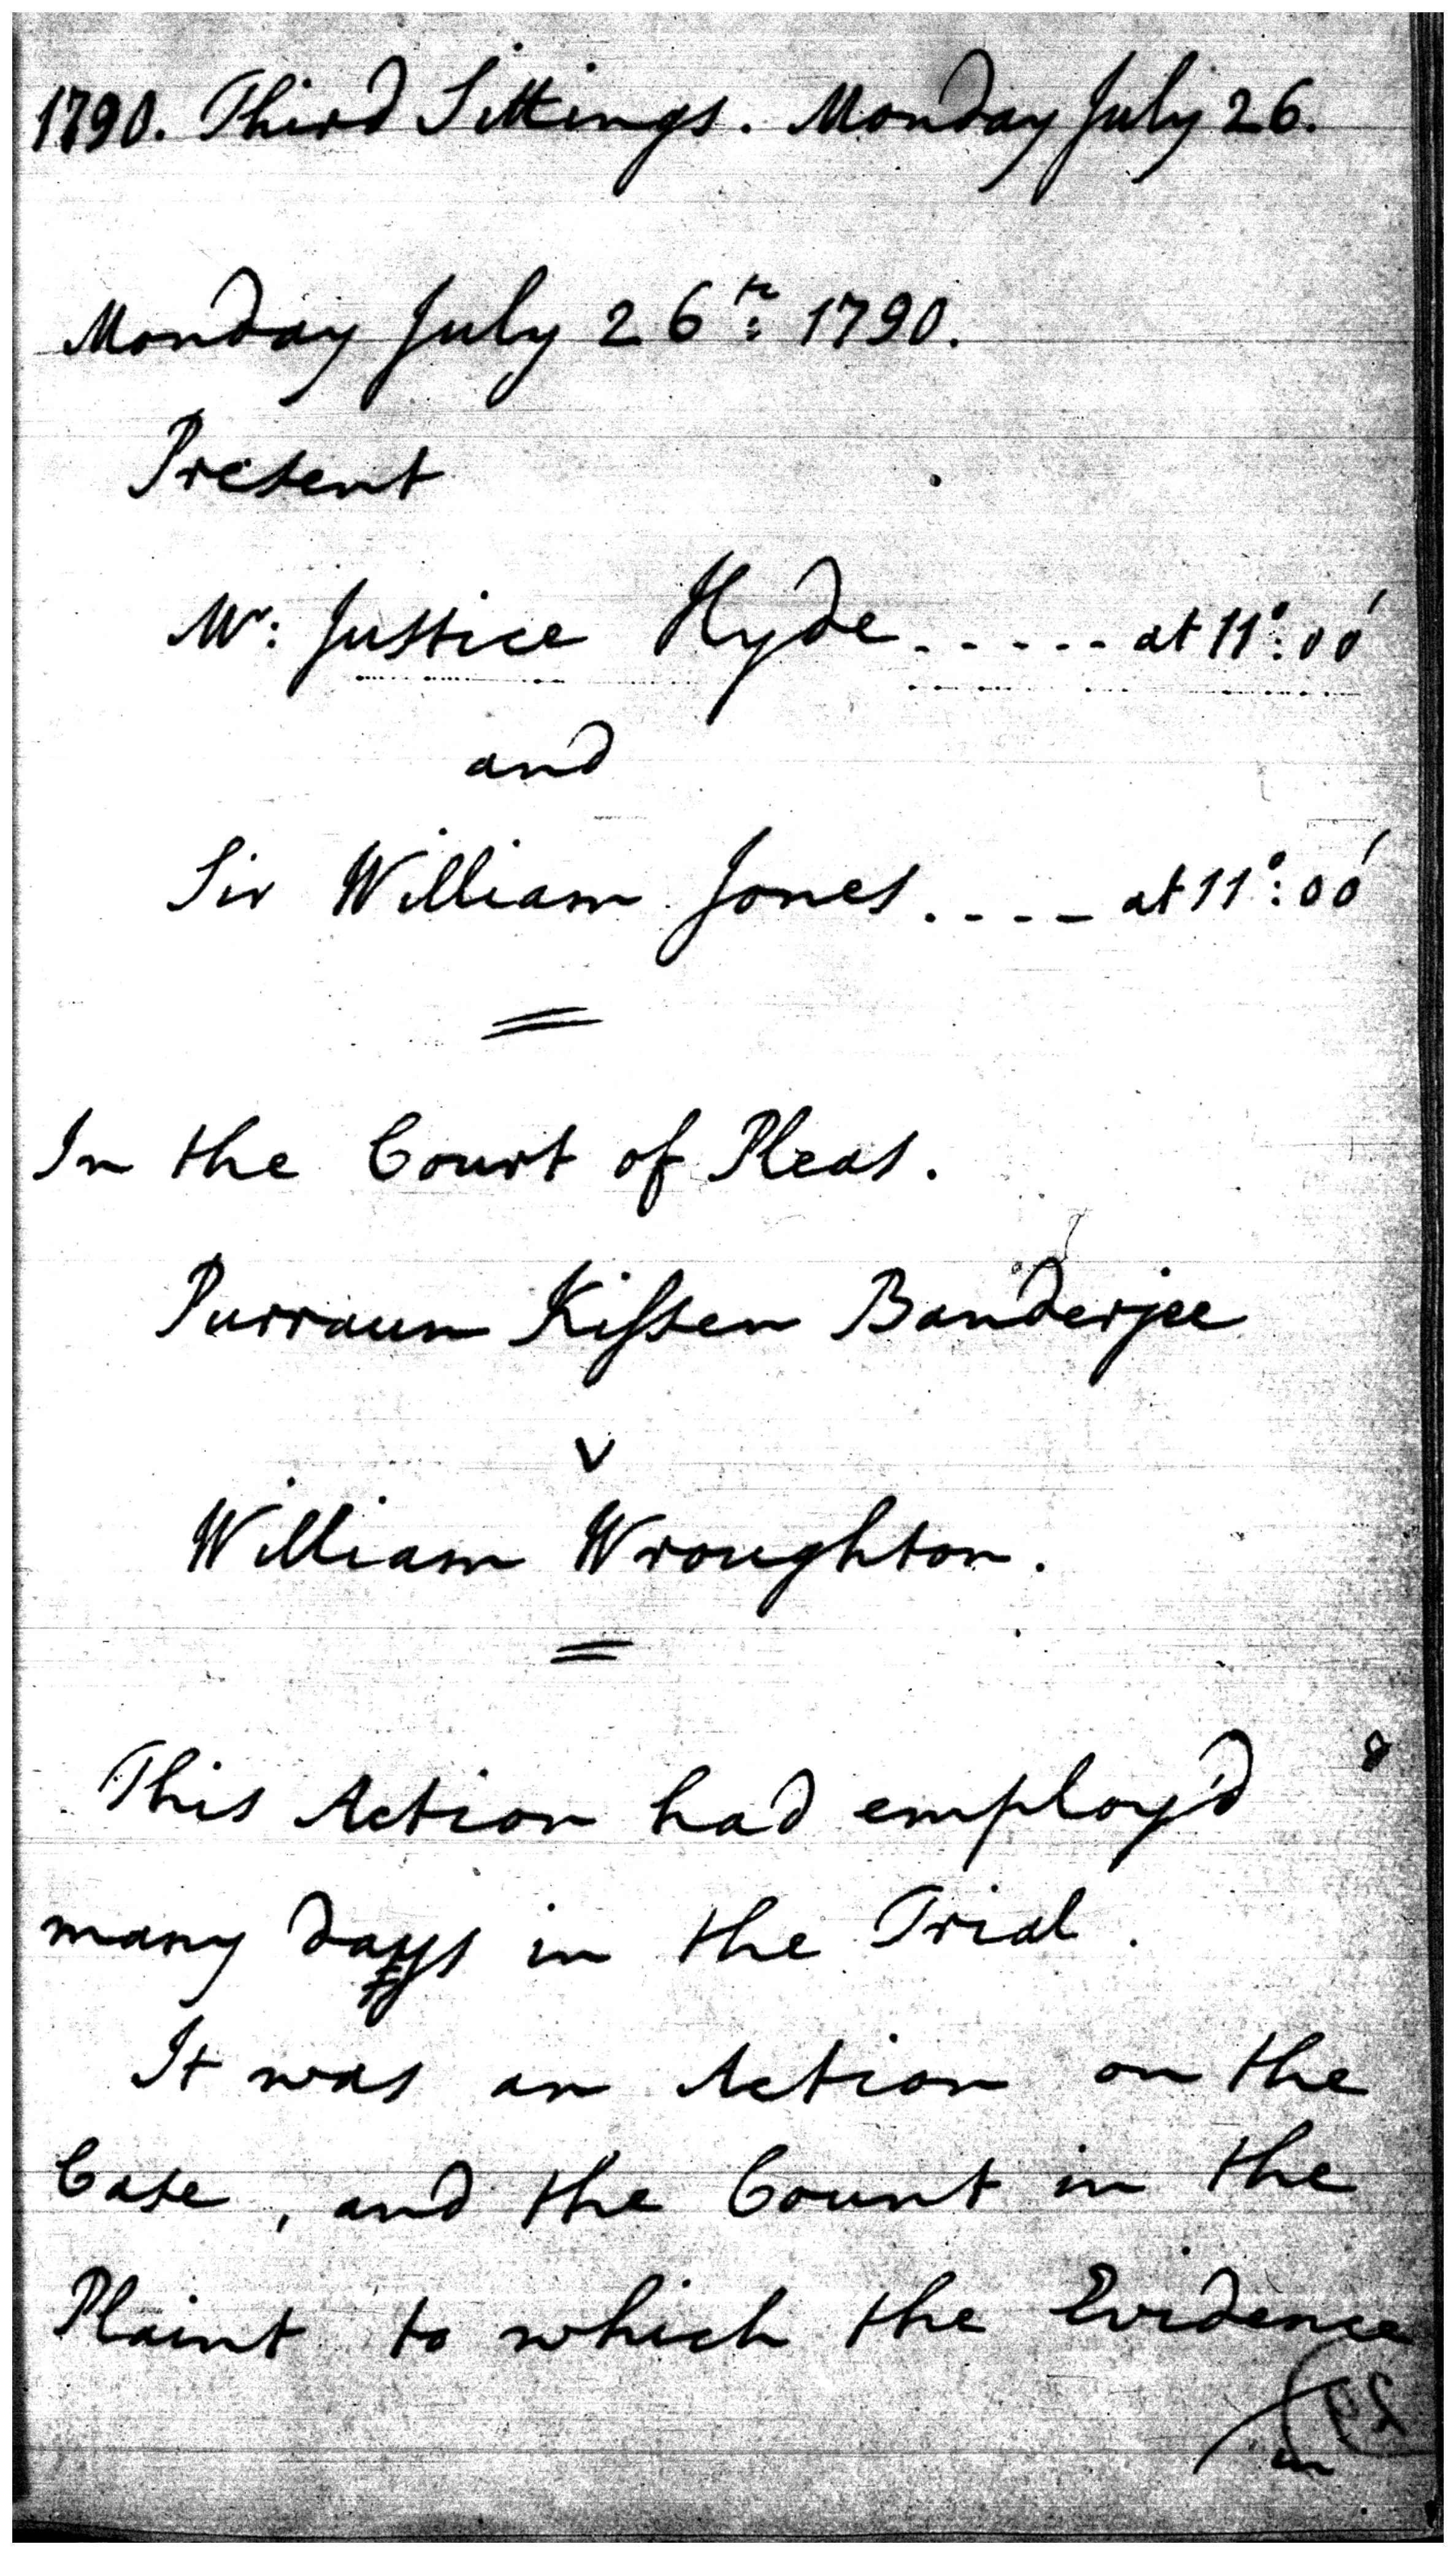 1790. Third Sittings. Monday July 26.
Monday July 26th: 1790.
Present
Mr: Justice Hyde ..... at 11°: 00'
and
Sir William Jones .... at 11°: 00'
In the Court of Pleas.
Purraun Kissen Banderjee
v
William Wroughton.
This Action had employ'd
many days in the Trial.
It was an Action on the
Case, and the Count in the
Plaint to which the Evidence